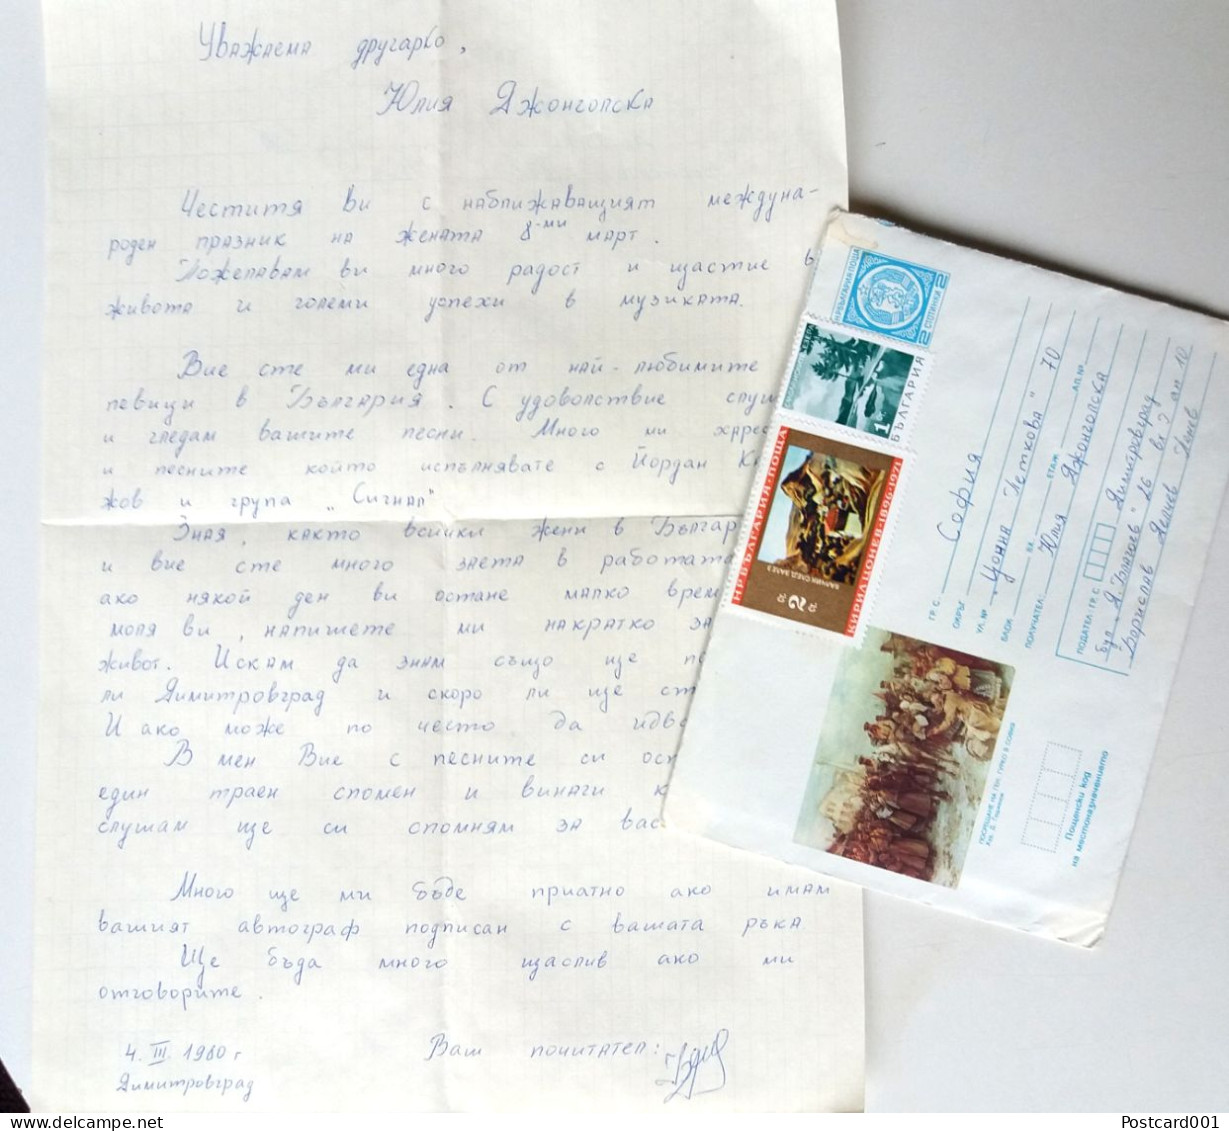 Уважаема другарко,
Юлия Джонголска
Честитя Ви с наближаващият междуна-
роден празник на жената 8-ми март.
Пожелавам ви много радост и щастие в
живота и големи успехи в музиката.
Вие сте ми една от най-любимите
певици в България. С удоволствие слуш
и гледам вашите песни. Много ми харес
и песните който испълнявате с Йордан К
жов и група „Сигнал"
Зная, както всички жени в Българ
и вие сте много заета в работата
ако някой ден ви остане малко врем
моля ви, напишете ми накратко за
живот. Искам да знам също ще по
ли Димитровград и скоро ли ще ст
И ако може по често да идв
В мен Вие с песните си ост
един траен спомен и винаги к
слушам ще си спомням за вас
Много ще ми бъде приатно ако имам
вашият автограф подписан с вашата ръка
Ще бъда много щаслив ако ми
отговорите.
4. III. 1980 г
Димитровград
Ваш почитател:
НР БЪЛГАРИЯ ПОЩА
2 СТОТИНКИ 2
БЪЛГАРИЯ
1
НР БЪЛГАРИЯ • ПОЩА
КИРИЛ ЦОНЕВ • 1896-1971
2 СТ
ГР. С. София
ОКРЪГ
УЛ. № „Цонка Петкова" 70
БЛОК ВХ. ЕТАЖ АП. №
ПОЛУЧАТЕЛ: Юлия Джонголска
ПОДАТЕЛ: ГР. С. Димитровград
бул „Д. Благоев" 26 вх Э ап 10
Делчев Ненев
ПОСРЕЩАНЕ НА ГЕН. ГУРКО В СОФИЯ
Пощенски код
на местоназначението
Postcard001